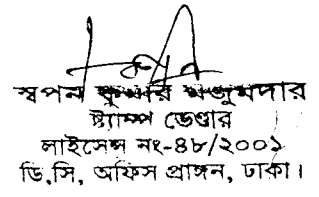 স্বপন কুমার মজুমদার
ষ্ট্যাম্প ভেণ্ডার
লাইসেন্স নং-৪৮/২০০১
ডি,সি, অফিস প্রাঙ্গন, ঢাকা।